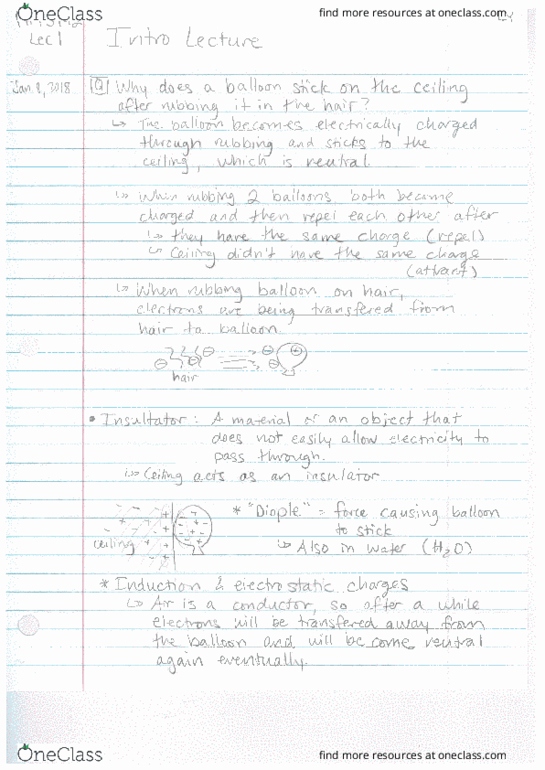 OneClass
find more resources at oneclass.com
Lec 1
Intro Lecture
Jan. 8, 2018
Q Why does a balloon stick on the ceiling
after rubbing it in the hair?
↳ The balloon becomes electrically charged
through rubbing and sticks to the
ceiling, which is neutral
↳ When rubbing 2 balloons both became
charged and then repel each other after
↳ they have the same charge (repel)
↳ Ceiling didn't have the same charge
(attract)
↳ When rubbing balloon on hair,
electrons are being transfered from
hair to balloon.
hair
• Insultator: A material or an object that
does not easily allow electricity to
pass through.
↳ Ceiling acts as an insulator
* "Diople" = force causing balloon
to stick
ceiling
↳ Also in water (H2O)
* Induction & electrostatic charges
↳ Air is a conductor, so after a while
electrons will be transfered away from
the balloon and will become neutral
again eventually.
OneClass
find more resources at oneclass.com